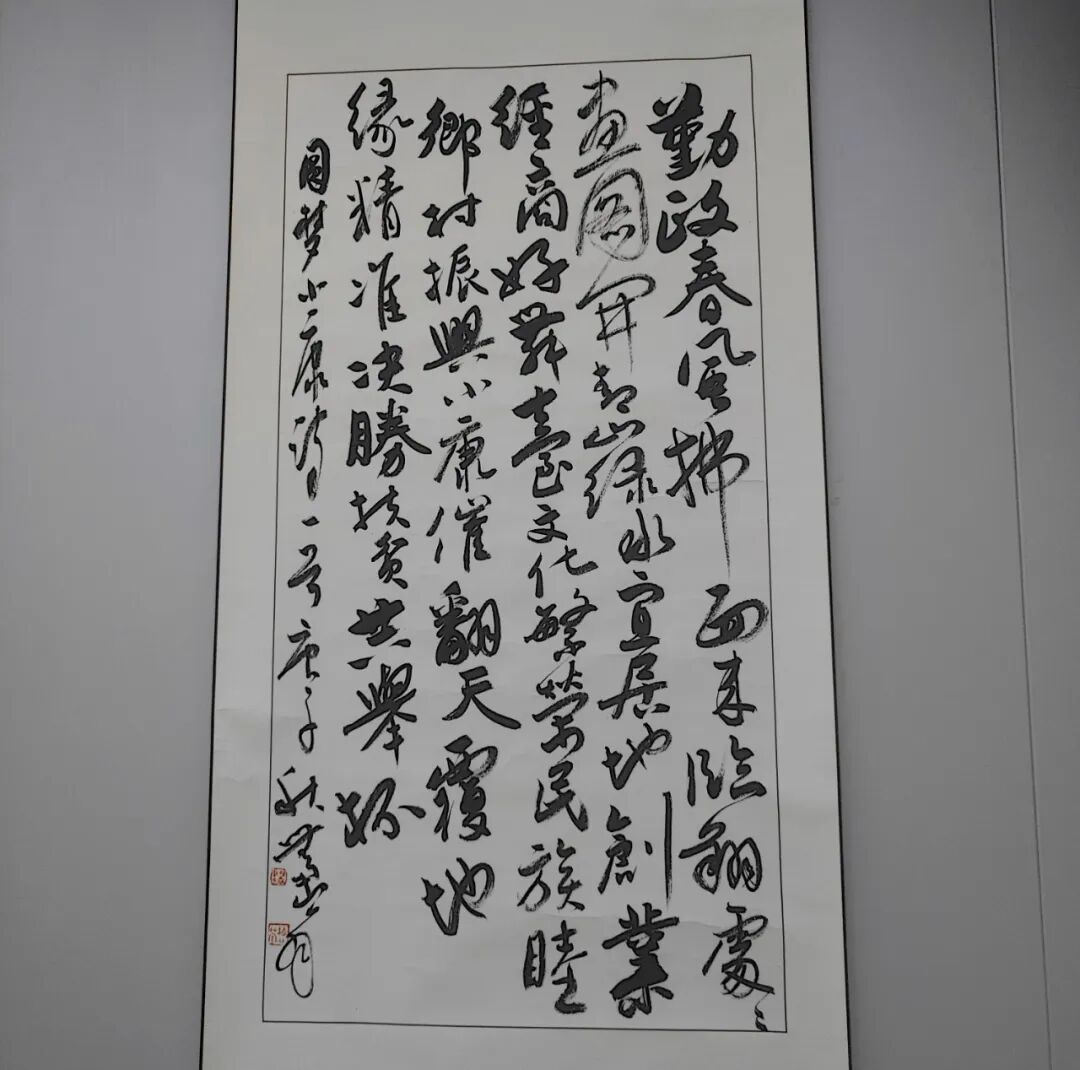 勤政春風拂面来臨翔處々
畫圖開青山绿水宜居地創業
經商好舞臺文化繁榮民族睦
鄉村振興小康催翻天覆地
緣精准决勝扶貧共舉杯
圆梦小康詩一首庚子秋